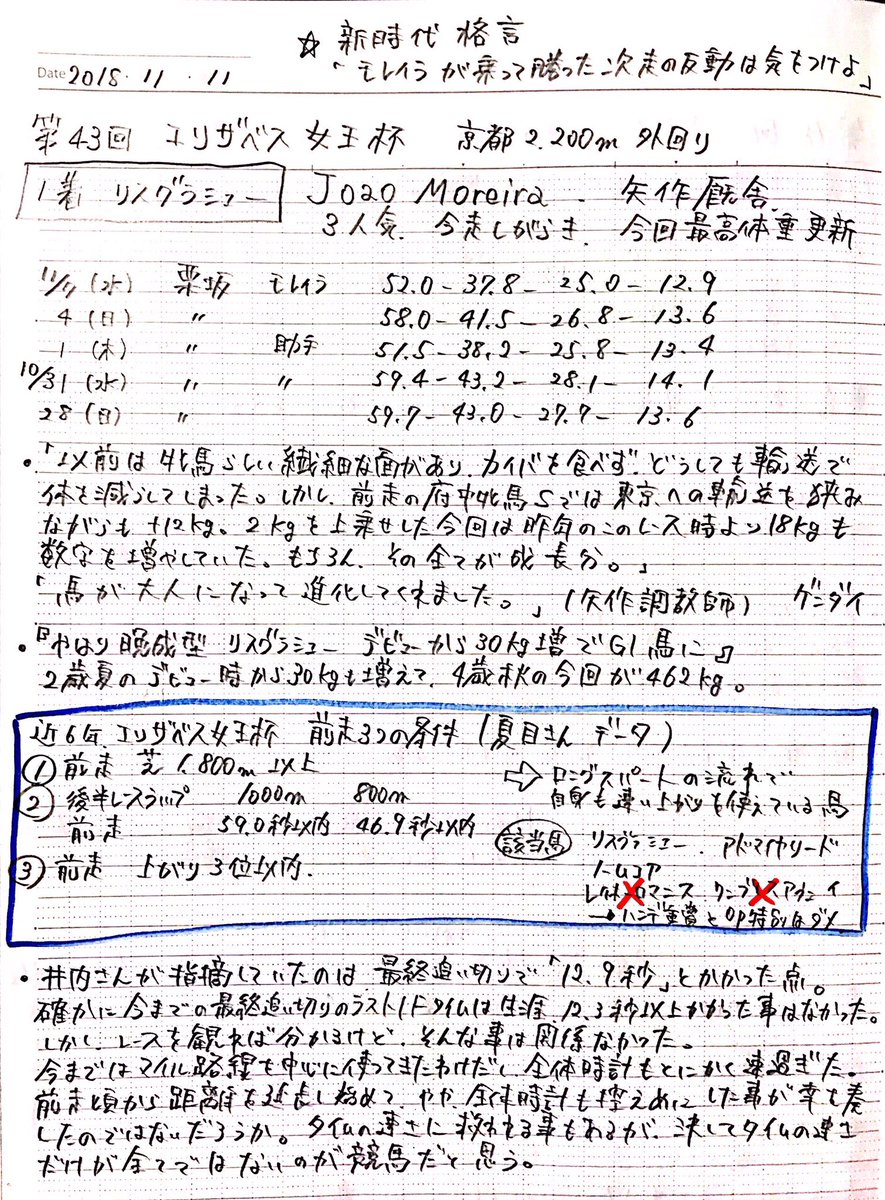 ☆ 新時代 格言
Date 2018・11・11 「モレイラが乗って勝った次走の反動は気をつけよ」
第43回 エリザベス女王杯 京都2.200m 外回り
1着 リスグラミュー Joao Moreira. 矢作厩舎
3人気. 今走しがらき. 今回最高体重更新
11/7(水) 栗坂 モレイラ 52.0-37.8-25.0-12.9
4(日) 〃 58.0-41.5-26.8-13.6
1(木) 〃 助手 51.5-38.2-25.8-13.4
10/31(水) 〃 〃 59.4-43.2-28.1-14.1
28(日) 〃 59.7-43.0-27.7-13.6
・「以前は牝馬らしい繊細な面があり、カイバを食べず、どうしても輸送で
体を減らしてしまった。しかし、前走の府中牝馬Sでは東京への輸送を挟み
ながらも+12kg。2kgを上乗せした今回は昨年のこのレース時より18kgも
数字を増やしていた。もちろん、その全てが成長分。」
「馬が大人になって進化してくれました。」(矢作調教師) ゲンダイ
・『やはり晩成型 リスグラミュー デビューから30kg増でGI馬に』
2歳夏のデビュー時から30kgも増えて、4歳秋の今回が462kg。
近6年 エリザベス女王杯 前走3つの条件(夏目さん データ)
① 前走 芝1.800m以上
② 後半レースラップ 1000m 800m
前走 59.0秒以内 46.9秒以内
③ 前走 上がり3位以内.
⇨ ロングスパートの流れで
自身も速い上がりを使えている馬
該当馬 リスグラミュー. アドマイヤリード
ノームコア
レイホーロマニス ワンブレスアウェイ
→ハンデ重賞とOP特別はダメ
・井内さんが指摘していたのは、最終追い切りで「12.9秒」とかかった点。
確かに今までの最終追い切りのラスト1Fタイムは生涯、12.3秒以上かかった事はなかった。
しかし、レースを観れば分かるけど、そんな事は関係なかった。
今まではマイル路線を中心に使ってきたわけだし、全体時計もとにかく速過ぎた。
前走頃から距離を延長し始めて、やや、全体時計も控えめにした事が幸を奏
したのではないだろうか。タイムの速さに救われる事もあるが、決してタイムの速さ
だけが全てではないのが競馬だと思う。